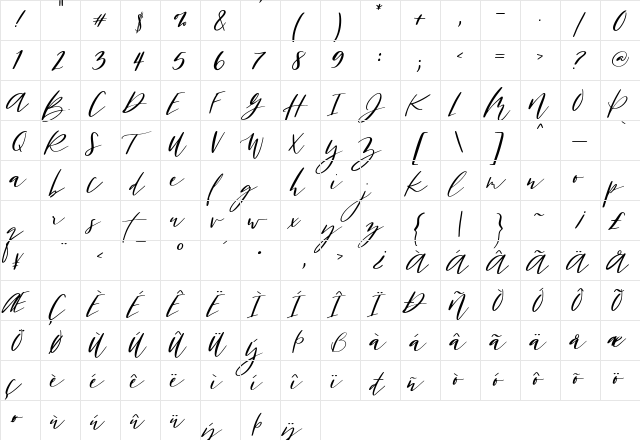 ! " # $ % & ' ( ) * + , - . / 0
1 2 3 4 5 6 7 8 9 : ; < = > ? @
A B C D E F G H I J K L M N O P
Q R S T U V W X Y Z [ \ ] ^ _ `
a b c d e f g h i j k l m n o p
q r s t u v w x y z { | } ~ ¡ £
¥ ¨ < ¯ ° ´ · ¸ > ¿ À Á Â Ã Ä Å
Æ Ç È É Ê Ë Ì Í Î Ï Ð Ñ Ò Ó Ô Õ
Ö Ø Ù Ú Û Ü Ý Þ ß à á â ã ä å æ
ç è é ê ë ì í î ï đ ñ ò ó ô õ ö
ø ù ú û ü ý þ ÿ